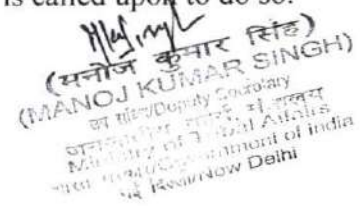 is called upon to do so.
(मनोज कुमार सिंह)
(MANOJ KUMAR SINGH)
उप सचिव/Deputy Secretary
जनजातीय कार्य मंत्रालय
Ministry of Tribal Affairs
भारत सरकार/Government of India
नई दिल्ली/New Delhi